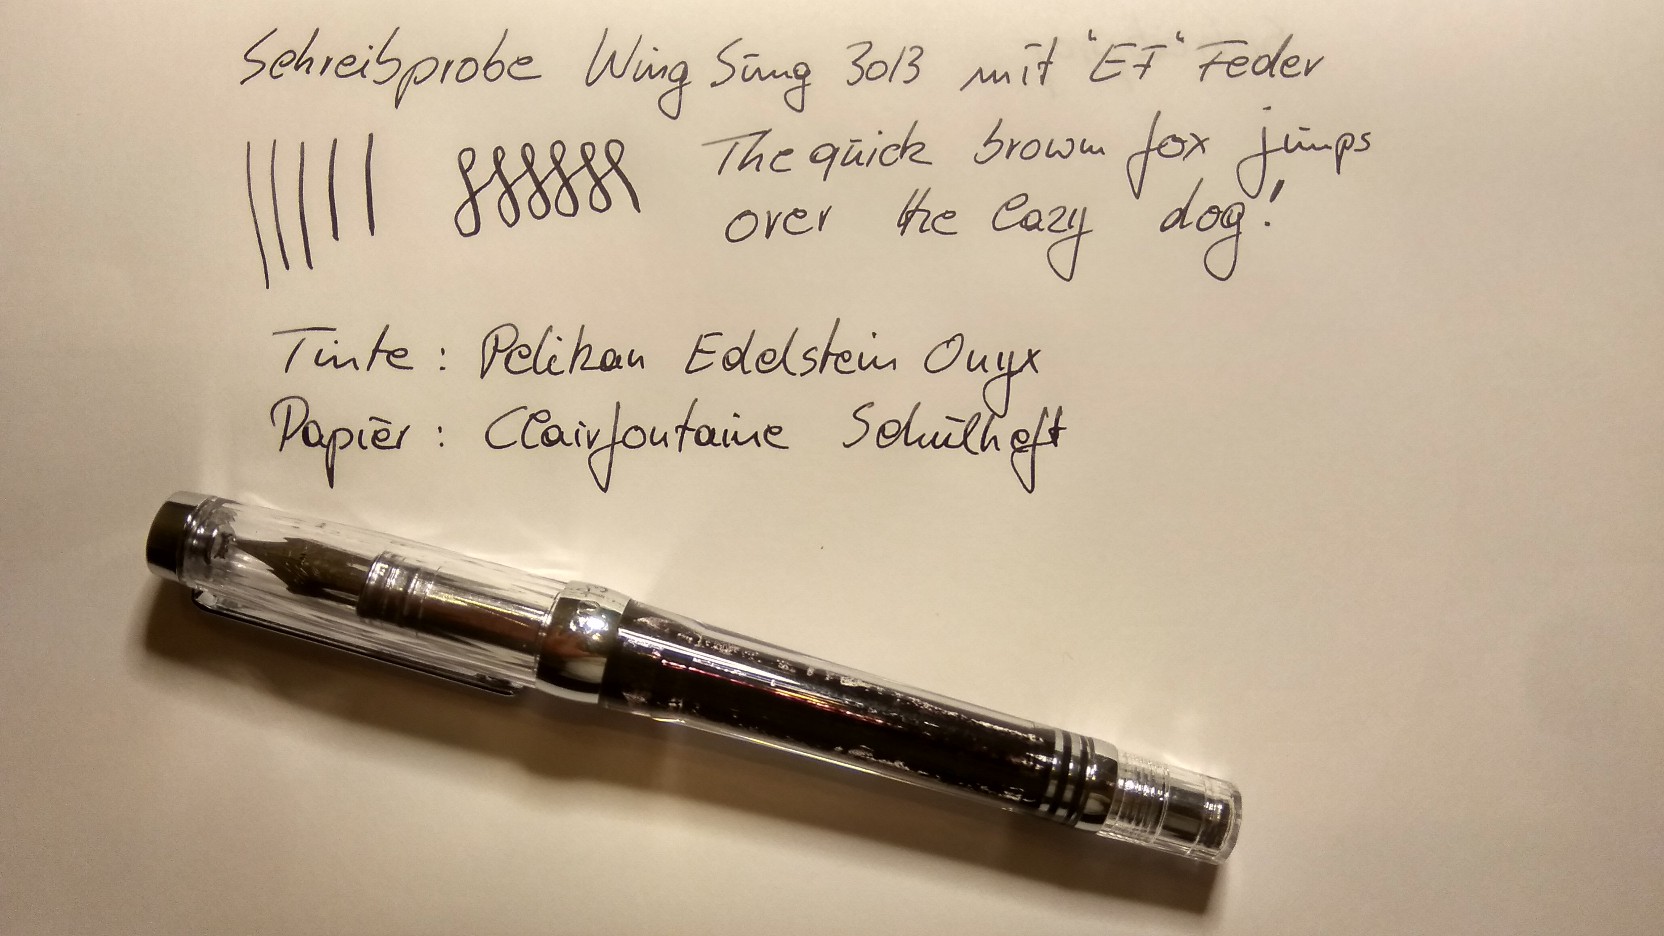 Schreibprobe Wing Sung 3013 mit "EF" Feder
The quick brown fox jumps
over the lazy dog!
Tinte: Pelikan Edelstein Onyx
Papier: Clairfontaine Schulheft